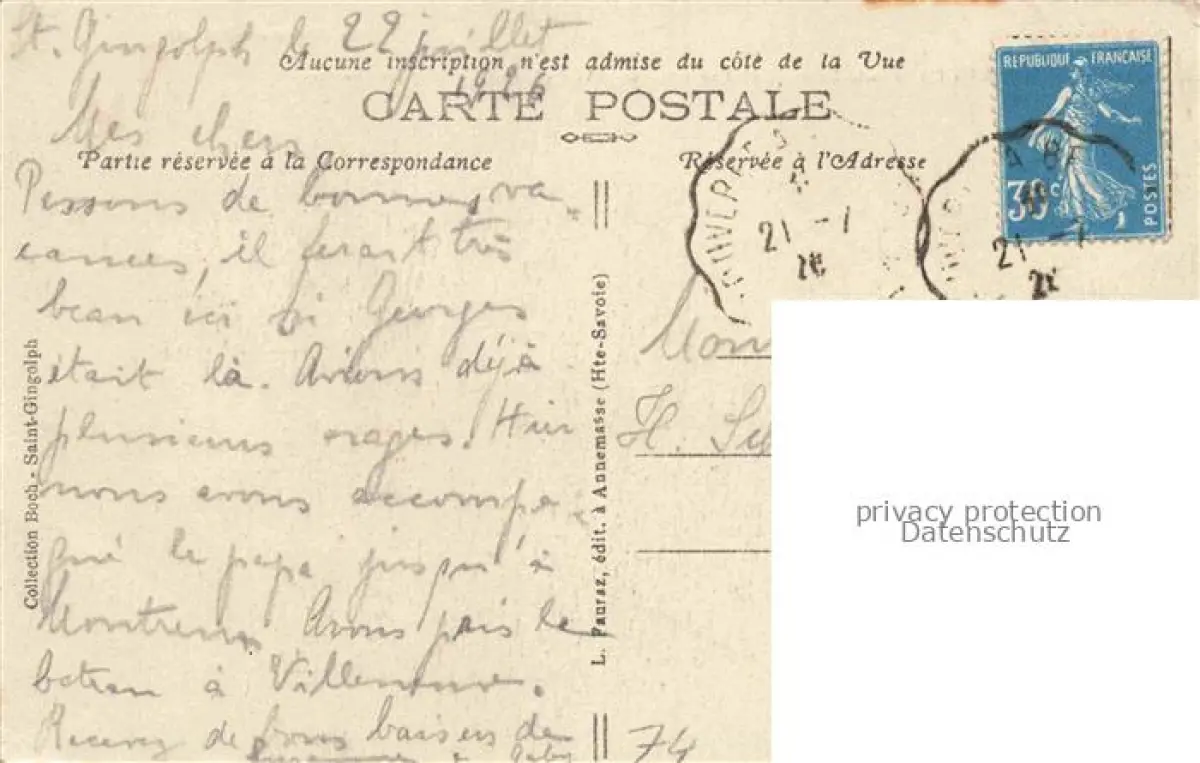 St. Gingolph le 22 juillet
1926
Aucune inscription n'est admise du côté de la Vue
CARTE POSTALE
Mes chers
Partie réservée à la Correspondance
Réservée à l'Adresse
Passons de bonnes va-
cances, il ferait très
beau ici si Georges
était là. Avions déjà
plusieurs orages. Hier
nous avons accompa-
gné le papa jusqu'à
Montreux. Avons pris le
bateau à Villeneuve.
Recevez de bons baisers de
Suzanne & Gaby
Collection Boch - Saint-Gingolph
L. Pauraz, édit. à Annemasse (Hte-Savoie)
REPUBLIQUE FRANÇAISE
30 c.
POSTES
21 - 7
26
21 - 7
26
H.
74
privacy protection
Datenschutz